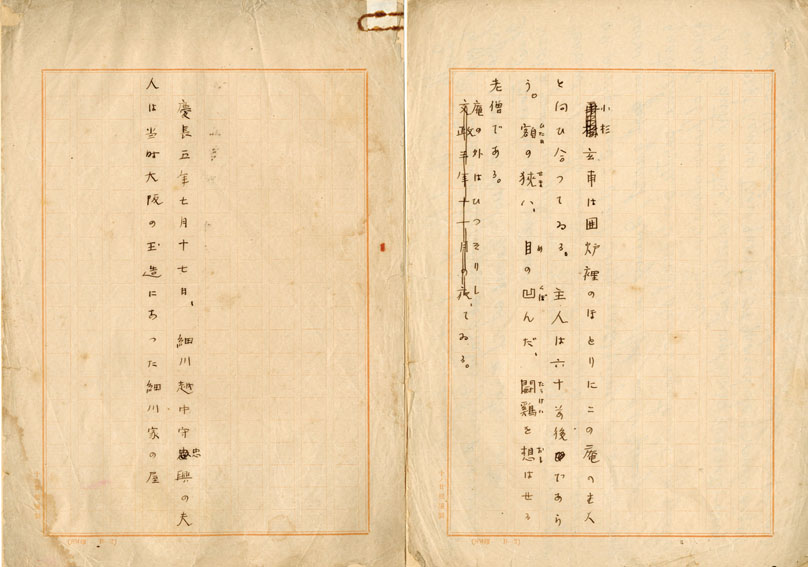 小杉玄甫は囲炉裡のほとりにこの庵の主人
と向ひ合つてゐる。主人は六十前後であら
う。額の狭い、目の凹んだ、闘鶏を想はせる
老僧である。
庵の外はひつそりし
文政五年十一月の夜、てゐる。
慶長五年七月十七日、細川越中守忠興の夫
人は当時大阪の玉造にあつた細川家の屋